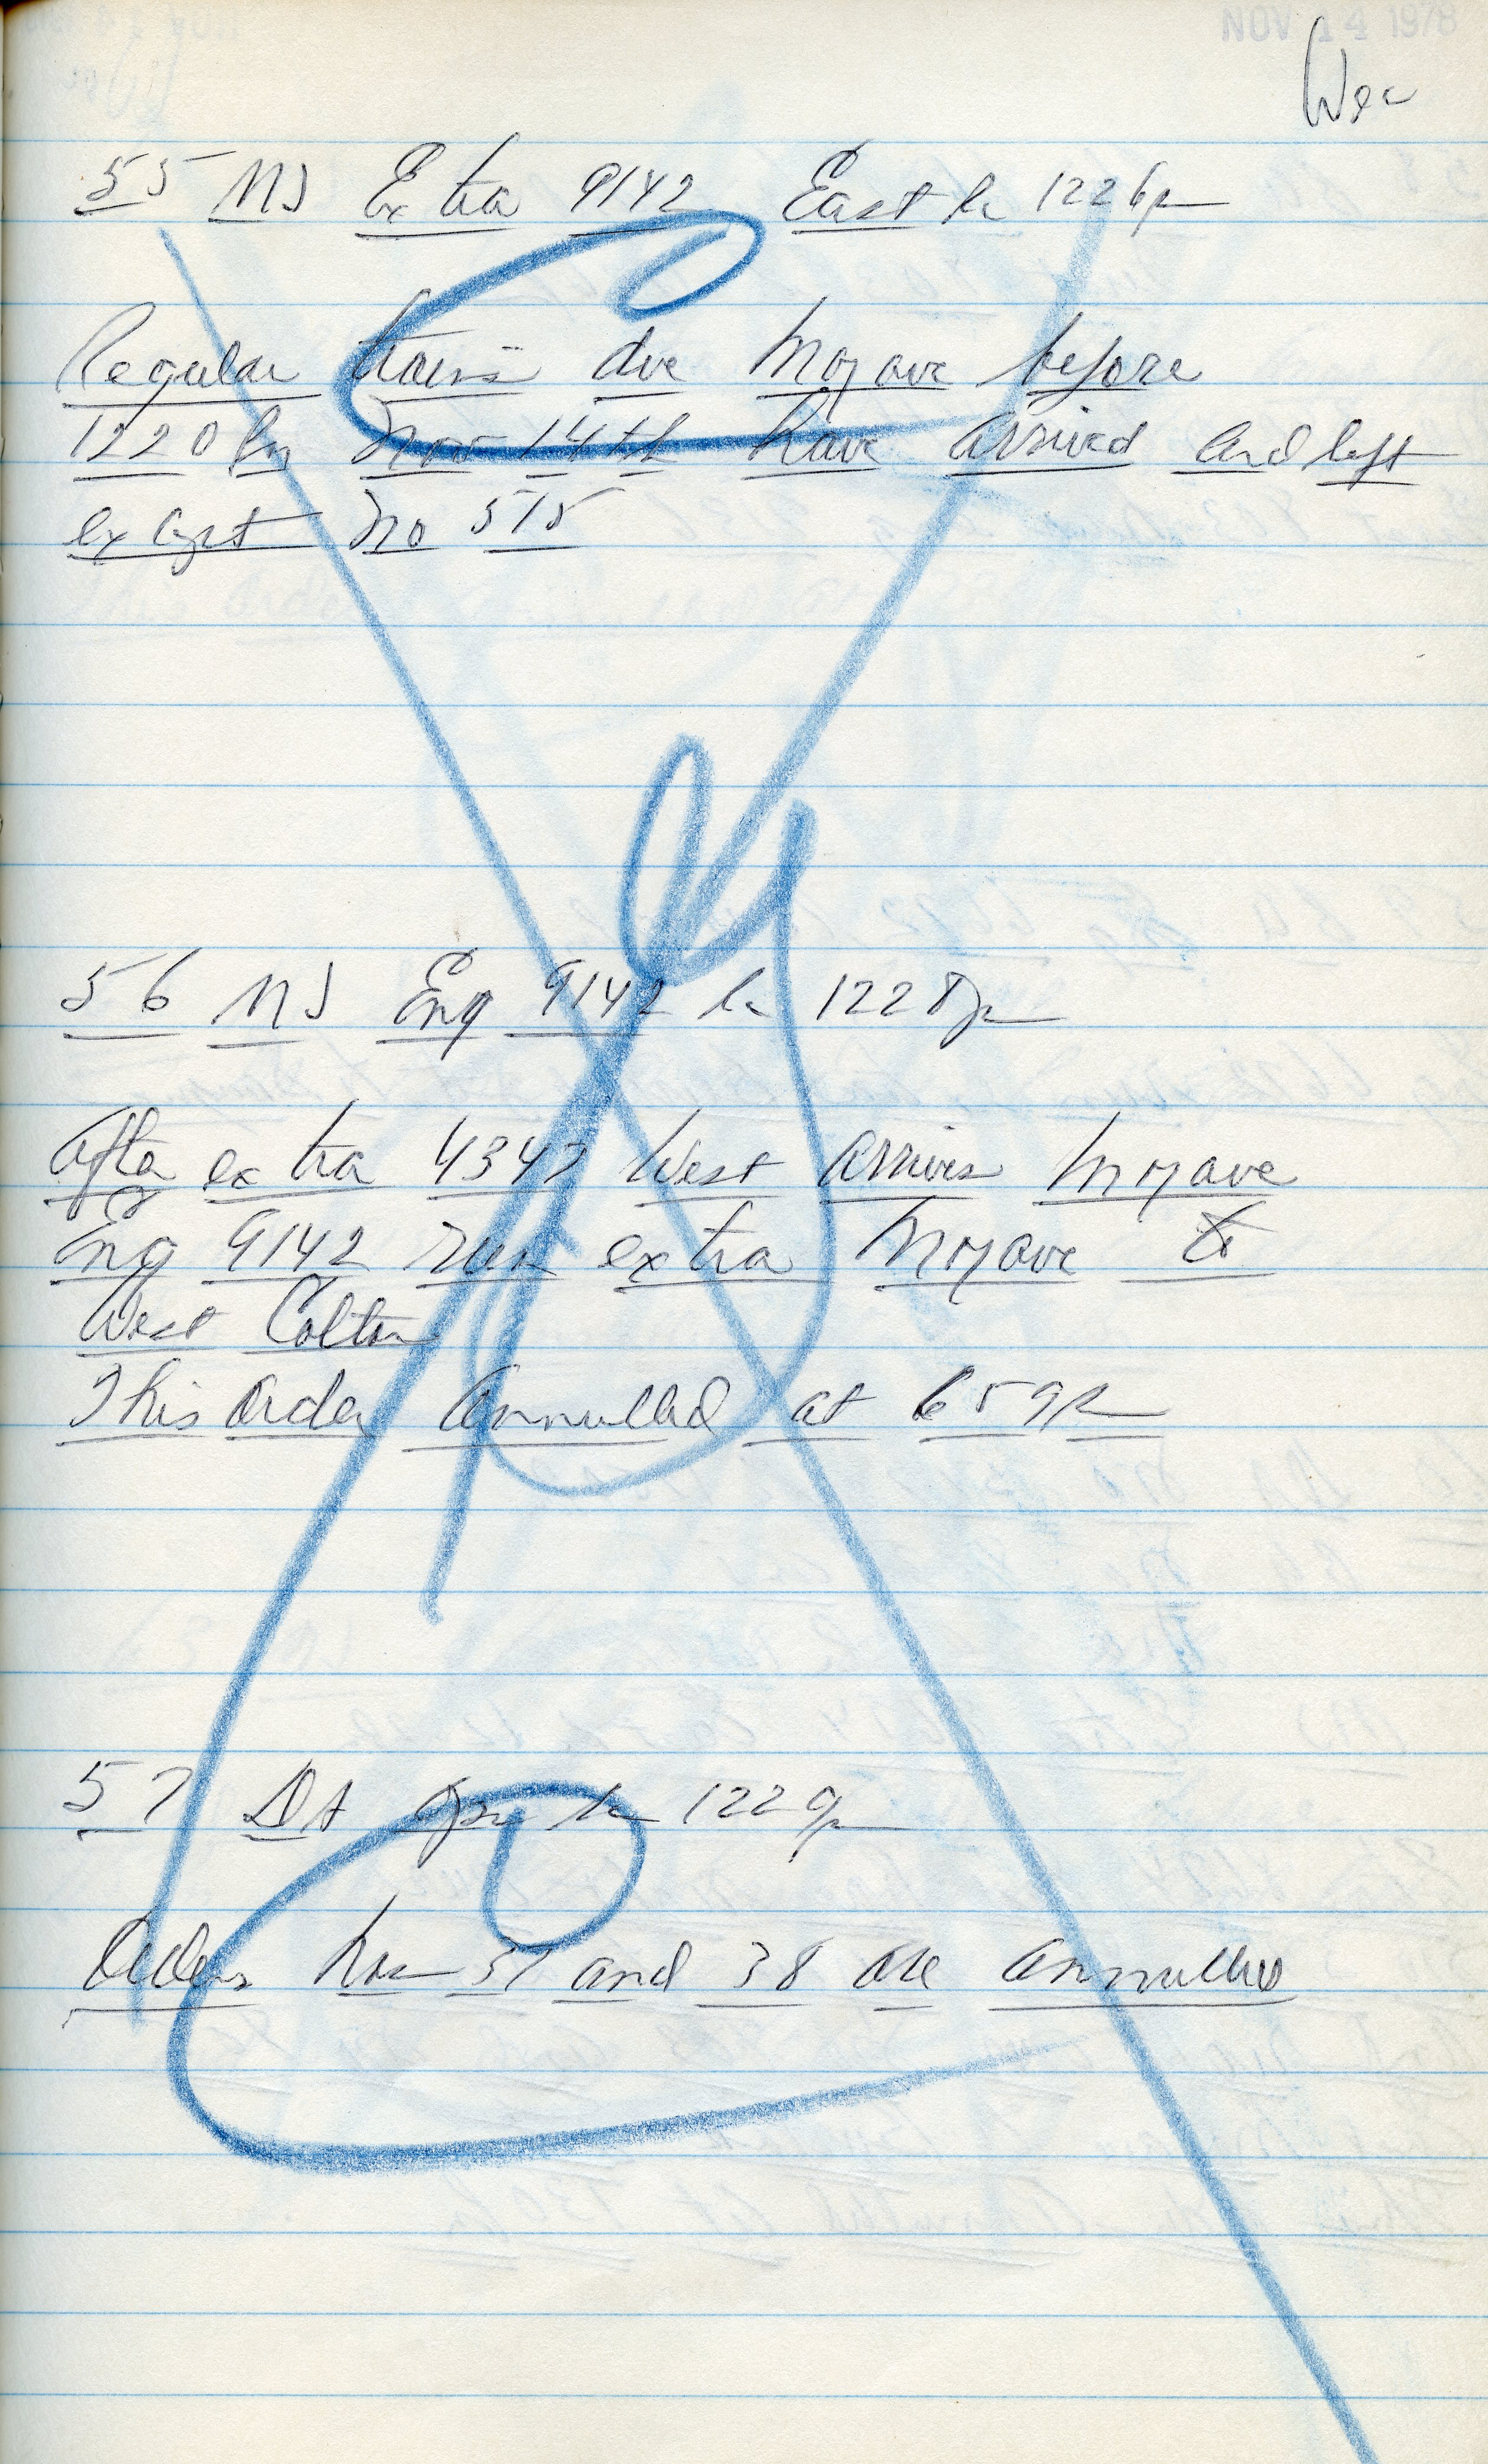 NOV 14 1978
55 MJ Extra 9142 East 1226p
Regular trains due Mojave before
1220 Pm Nov 14th have arrived and left
except No 515
56 MJ Eng 9142 1228p
After extra 4347 West arrives Mojave
Eng 9142 run extra Mojave to
West Colton
This order annulled at 659P
57 1229p
Orders Nos 37 and 38 are annulled